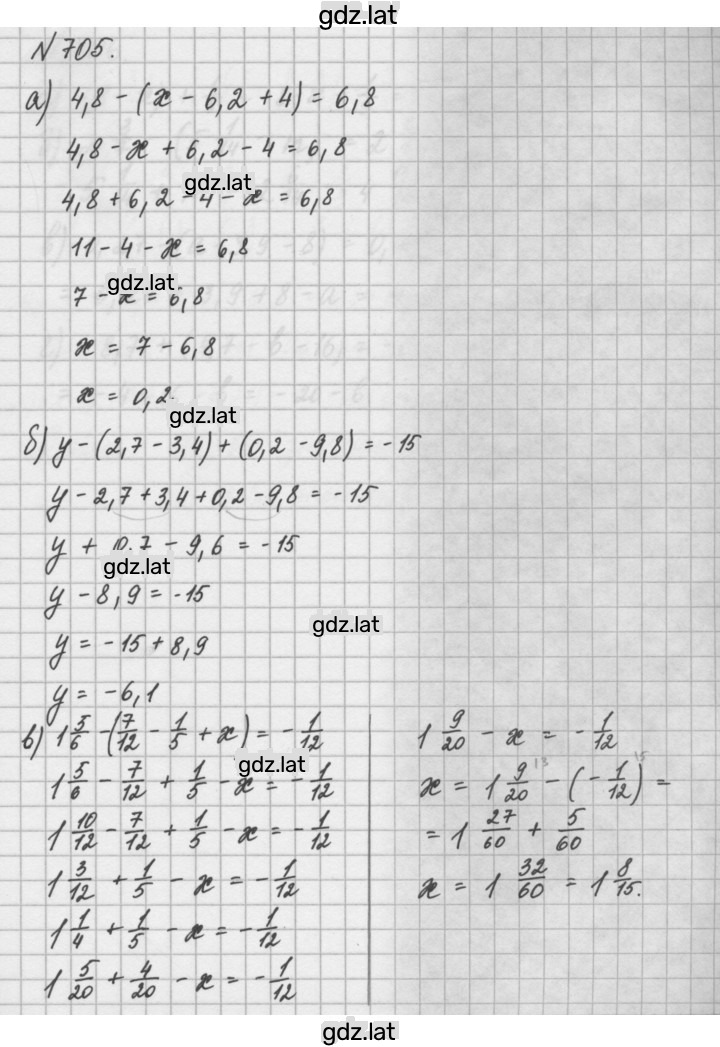 gdz.lat
N 705.
а) 4,8 - (x - 6,2 + 4) = 6,8
4,8 - x + 6,2 - 4 = 6,8
gdz.lat
4,8 + 6,2 - 4 - x = 6,8
11 - 4 - x = 6,8
gdz.lat
7 - x = 6,8
x = 7 - 6,8
x = 0,2.
gdz.lat
б) y - (2,7 - 3,4) + (0,2 - 9,8) = -15
y - 2,7 + 3,4 + 0,2 - 9,8 = -15
y + 10,7 - 9,6 = -15
gdz.lat
y - 8,9 = -15
gdz.lat
y = -15 + 8,9
y = -6,1
в) 1 5/6 - (7/12 - 1/5 + x) = - 1/12
gdz.lat
1 5/6 - 7/12 + 1/5 - x = - 1/12
1 10/12 - 7/12 + 1/5 - x = - 1/12
1 3/12 + 1/5 - x = - 1/12
1 1/4 + 1/5 - x = - 1/12
1 5/20 + 4/20 - x = - 1/12
1 9/20 - x = - 1/12
x = 1 9/20 - (- 1/12) =
= 1 27/60 + 5/60
x = 1 32/60 = 1 8/15.
gdz.lat